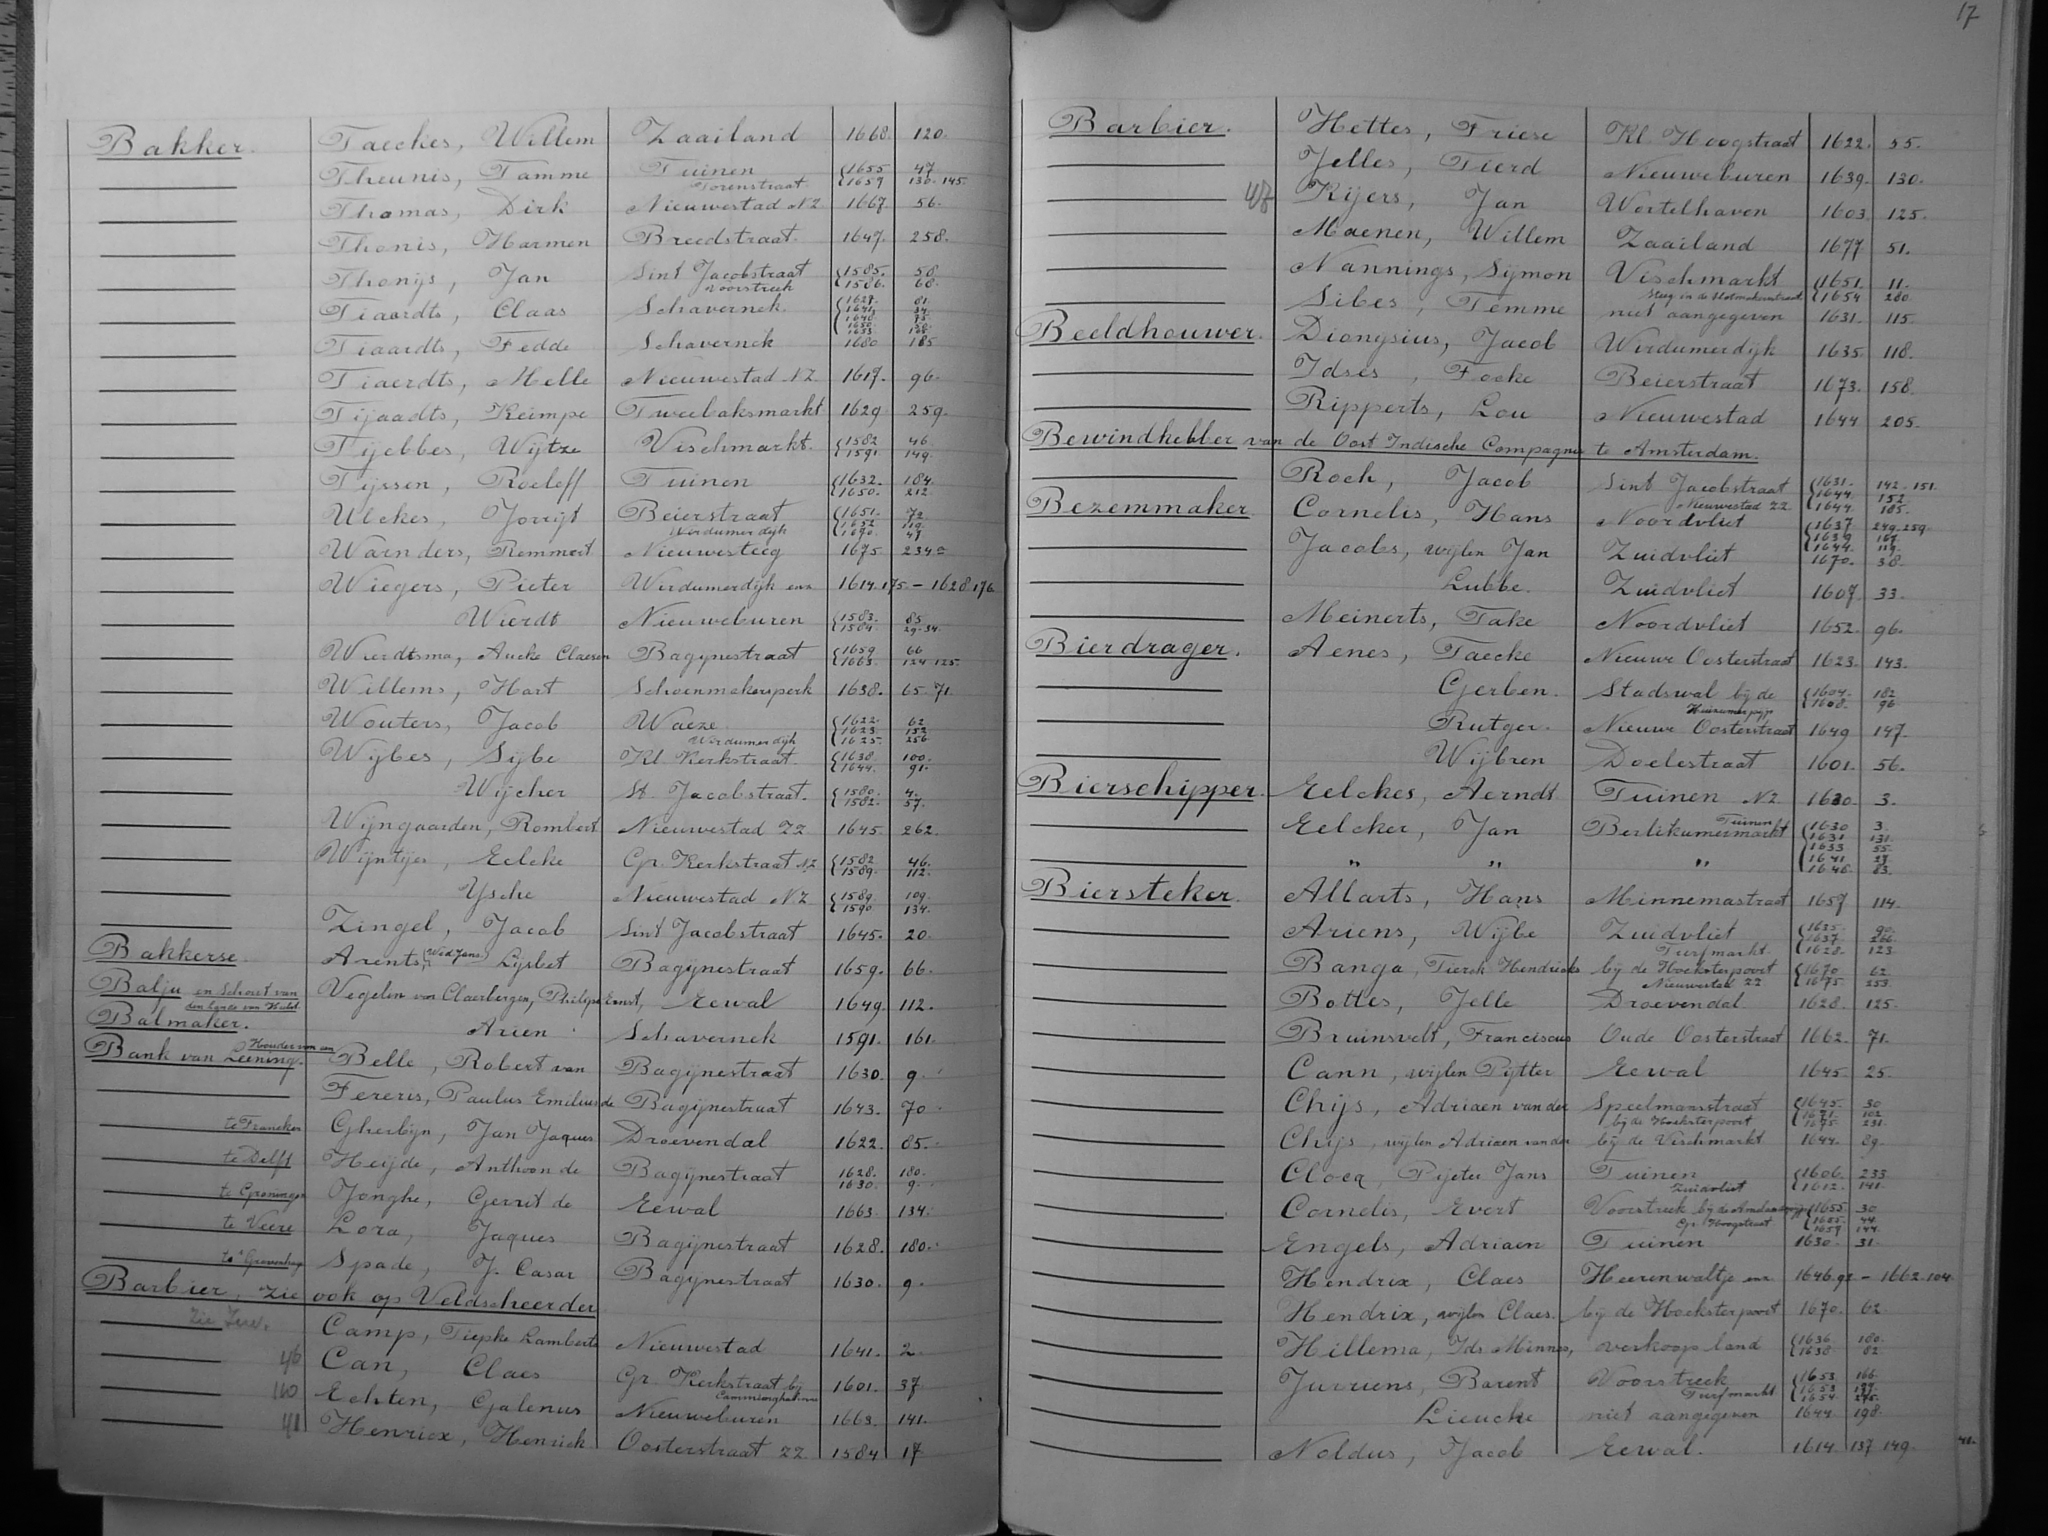 17
Bakker. Taeckes, Willem Zaailand 1668. 120.
Theunis, Tamme Tuinen 1655 47
Torenstraat 1659 130. 145.
Thomas, Dirk Nieuwestad NZ 1667. 56.
Thonis, Harmen Breedstraat. 1647. 258.
Thonijs, Jan Sint Jacobstraat 1585. 58
Voorstreek 1586. 68.
Tiaardts, Claas Schavernek.
Tiaardts, Fedde Schavernek 1680 185
Tiaerdts, Melle Nieuwestad NZ 1617. 96.
Tijaadts, Keimpe Tweebaksmarkt 1629 259.
Tijebbes, Wijtze Vischmarkt. 1582 46.
1591 149.
Tijssen, Roeleff Tuinen 1632. 184.
1650. 212
Ulckes, Jorrijt Beierstraat 1651. 72.
Wirdumerdijk
Warnders, Remmert Nieuwesteeg 1675 234
Wiegers, Pieter Wirdumerdijk enz 1614. 175. - 1628. 176
Wierdt Nieuweburen 1583. 85
1584. 29. 34.
Wierdtsma, Aucke Claesen Bagijnestraat 1659 66
1663. 124. 125.
Willems, Hart Schoenmakersperk 1638. 65. 71.
Wouters, Jacob Waeze 1622. 62
1623. 152
Wirdumerdijk 1625. 256
Wijbes, Sijbe Kl. Kerkstraat 1638 100.
1644. 91.
Wijcher St. Jacobstraat. 1580. 4.
1582. 57.
Wijngaarden, Rombert Nieuwestad ZZ 1645. 262.
Wijntjes, Eelcke Gr. Kerkstraat NZ 1582. 46.
1589. 112.
Ysche Nieuwestad NZ 1589 109
1590 134.
Zingel, Jacob Sint Jacobstraat 1645. 20.
Bakkerse Arents, (Wed. Jans) Lysbet Bagijnestraat 1659. 66.
Balju en Schout van Vegelin van Claerbergen, Philips Ernst, Eewal 1649. 112.
Balmaker. Arien Schavernek 1591. 161.
Houder van een
Bank van Leening. Belle, Robert van Bagijnestraat 1630. 9.
Fereris, Paulus Emilius de Bagijnestraat 1643. 70
te Franeker Gherbijn, Jan Jaques Droevendal 1622. 85.
te Delft Heijde, Anthoon de Bagijnestraat 1628. 180.
1630. 9.
te Groningen Jonghe, Gerrit de Eewal 1663. 134.
te Veere Lora, Jaques Bagijnestraat 1628. 180.
te 's Gravenhage Spade, J. Casar Bagijnestraat 1630. 9.
Barbier, zie ook op Veldscheerder
Camp, Tiepke Lamberts Nieuwestad 1641. 2.
46 Can, Claes Gr. Kerkstraat bij 1601. 37
Camminghahuis
110 Echten, Galenus Nieuweburen 1663. 141.
41 Henricx, Henrick Oosterstraat ZZ 1584 17
Barbier. Hettes, Friese Kl. Hoogstraat 1622. 55.
Jelles, Tierd Nieuweburen 1639. 130.
Kijers, Jan Wortelhaven 1603. 125.
Maenen, Willem Zaailand 1677 51.
Nannings, Sijmon Vischmarkt 1651. 11.
Steeg in de Slotmakersstraat 1654 280.
Sibes, Temme niet aangegeven 1631. 115.
Beeldhouwer. Dionysius, Jacob Wirdumerdijk 1635. 118.
Idses, Focke Beierstraat 1673. 158.
Ripperts, Lou Nieuwestad 1644 205.
Bewindhebber van de Oost Indische Compagnie te Amsterdam.
Roch, Jacob Sint Jacobstraat 1631. 142. 151.
1644. 152
Nieuwestad ZZ 1644. 185.
Bezemmaker. Cornelis, Hans Noordvliet 1637 249. 259.
1639 167.
1644. 119.
Jacobs, wijlen Jan Zuidvliet 1670. 38.
Lubbe. Zuidvliet 1607. 33.
Meinerts, Take Noordvliet 1652. 96.
Bierdrager. Aenes, Taecke Nieuwe Oosterstraat 1623. 143.
Gerben. Stadswal bij de 1604. 182
Huizumerpijp 1608. 96.
Rutger. Nieuwe Oosterstraat 1649 147.
Wijbren Doelestraat 1601. 56.
Bierschipper. Eelckes, Aerndt Tuinen NZ 1630. 3.
Eelcker, Jan Tuinen 1630 3.
Berlikumermarkt 1631 131.
1633 55.
„ „ „ 1641 27.
1646. 83.
Biersteker. Allarts, Hans Minnemastraat 1657 114.
Ariens, Wijbe Zuidvliet 1625. 90.
1637. 266.
Turfmarkt 1628. 123
Banga, Tierck Hendricks bij de Hoeksterpoort 1670 62
Nieuwestad ZZ 1675. 253.
Bottes, Jelle Droevendal 1628. 125.
Bruinsvelt, Franciscus Oude Oosterstraat 1662. 71.
Cann, wijlen Pijtter Eewal 1645. 25.
Chijs, Adriaen van der Speelmansstraat 1645. 30
1671. 102
bij de Hoeksterpoort 1675. 231.
Chijs, wijlen Adriaen van der bij de Vischmarkt 1644. 89.
Clocq, Pijeter Jans Tuinen 1606. 233
Zuidvliet 1612. 141.
Cornelis, Evert Voorstreek bij de 1655. 30
Gr. Hoogstraat 1655. 44.
1659 144.
Engels, Adriaen Tuinen 1630. 31.
Hendrix, Claes Heerenwaltje enz. 1646. 92 - 1662. 104.
Hendrix, wijlen Claes. bij de Hoeksterpoort 1670. 62
Hillema, Ids Minnes, verkoop land 1636 180.
1638 82
Jurriens, Barent Voorstreek 1653 166
Turfmarkt
Lieucke niet aangegeven 1644 198.
Noldus, Jacob Eewal. 1614. 137 149.